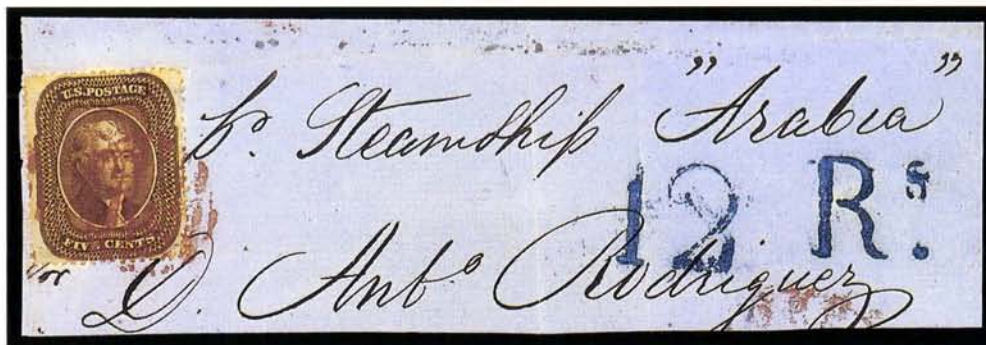 U.S. POSTAGE
FIVE CENTS
p. Steamship "Arabia"
12 Rs.
D. Anto Rodriguez